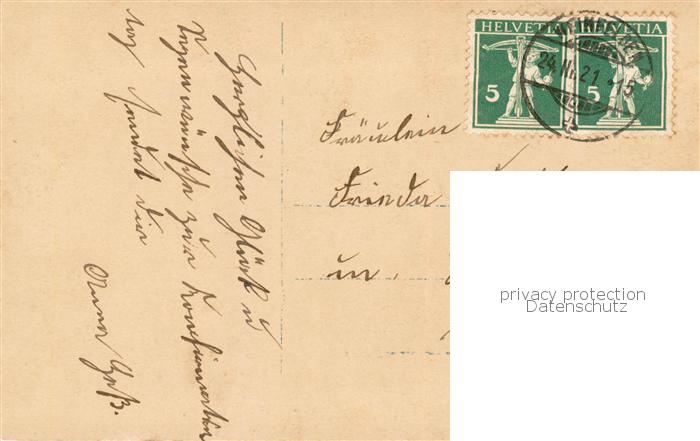 Herzlichen Glück u
Segenswünsche zur Konfirmation
sendet dir
Anna
HELVETIA
HELVETIA
5
5
24. III. 21
Fräulein
Frieda
in
privacy protection
Datenschutz